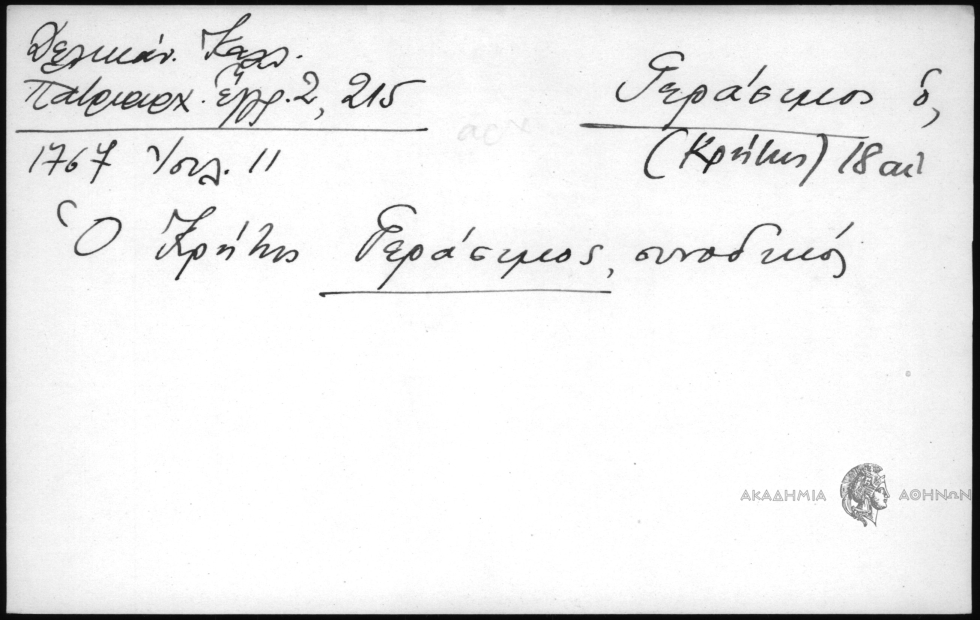 Δελικάν. Καλλ.
Πατριαρχ. Ἔγγρ. 2, 215
Γεράσιμος ὁ,
(Κρήτης) 18 αἰ
1767 Ἰουλ. 11
Ὁ Κρήτης Γεράσιμος, συνοδικός
ΑΚΑΔΗΜΙΑ ΑΘΗΝΩΝ